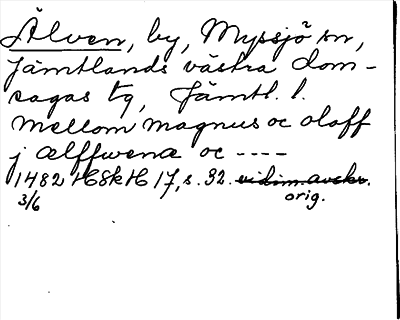 Älven, by, Myssjö sn,
Jämtlands västra dom-
sagas tg, Jämtl. l.
mellom magnus oc olaff
j ælffwena oc ----
1482 HSkH 17, s. 32. vidim. avskr.
3/6 orig.